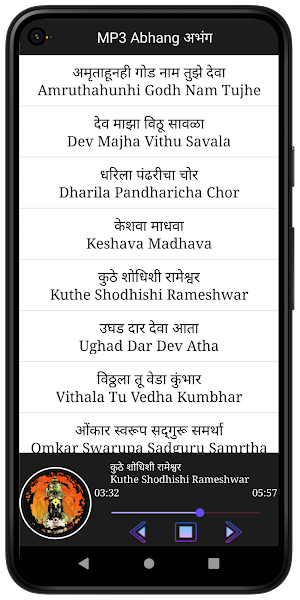 MP3 Abhang अभंग
अमृताहूनही गोड नाम तुझे देवा
Amruthahunhi Godh Nam Tujhe
देव माझा विठू सावळा
Dev Majha Vithu Savala
धरिला पंढरीचा चोर
Dharila Pandharicha Chor
केशवा माधवा
Keshava Madhava
कुठे शोधिशी रामेश्वर
Kuthe Shodhishi Rameshwar
उघड दार देव आता
Ughad Dar Dev Atha
विठ्ठला तू वेडा कुंभार
Vithala Tu Vedha Kumbhar
ओंकार स्वरूप सद्‍गुरू समर्था
Omkar Swarupa Sadguru Samrtha
कुठे शोधिशी रामेश्वर
Kuthe Shodhishi Rameshwar
03:32 05:57